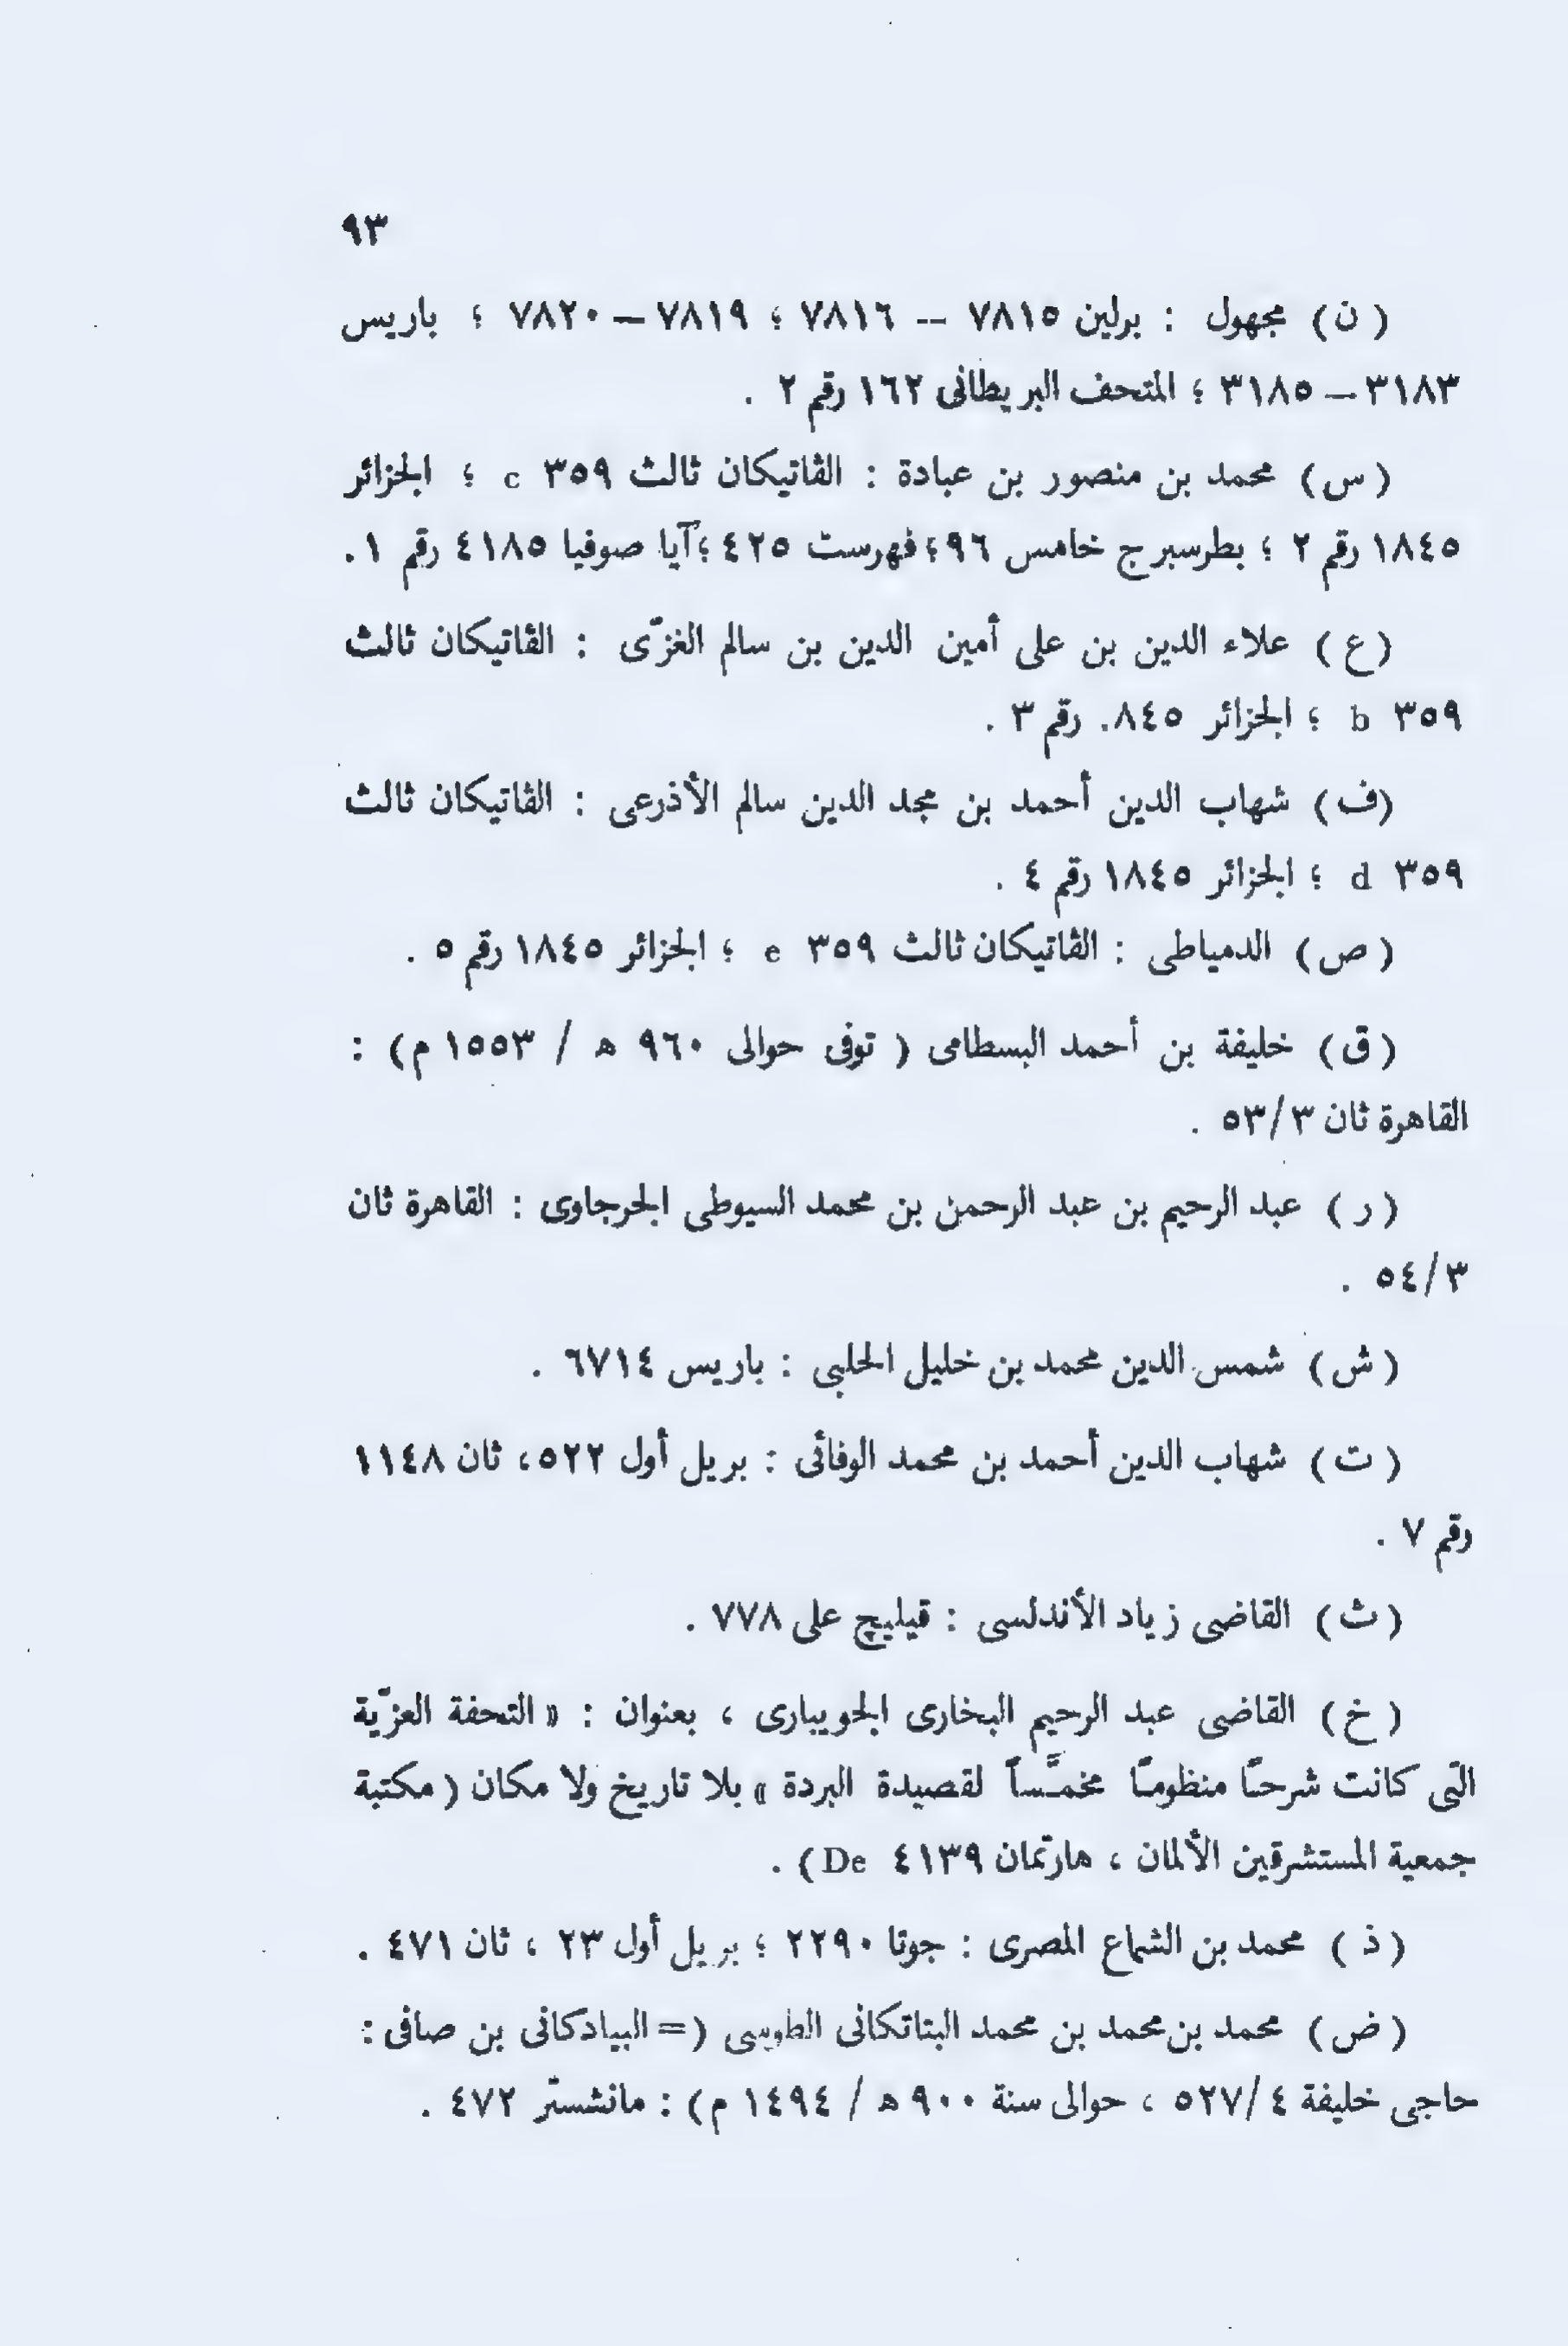 ٩٣
( ن ) مجهول : برلين ٧٨١٥ -- ٧٨١٦ ؛ ٧٨١٩ – ٧٨٢٠ ؛ باريس
٣١٨٣ – ٣١٨٥ ؛ المتحف البريطانى ١٦٢ رقم ٢ .
( س ) محمد بن منصور بن عبادة : الڤاتيكان ثالث ٣٥٩ c ؛ الجزائر
١٨٤٥ رقم ٢ ؛ بطرسبرج خامس ٩٦ ؛ فهرست ٤٢٥ ؛ آيا صوفيا ٤١٨٥ رقم ١ .
( ع ) علاء الدين بن على أمين الدين بن سالم الغزّى : الڤاتيكان ثالث
٣٥٩ b ؛ الجزائر ٨٤٥. رقم ٣ .
( ف ) شهاب الدين أحمد بن مجد الدين سالم الأذرعى : الڤاتيكان ثالث
٣٥٩ d ؛ الجزائر ١٨٤٥ رقم ٤ .
( ص ) الدمياطى : الڤاتيكان ثالث ٣٥٩ e ؛ الجزائر ١٨٤٥ رقم ٥ .
( ق ) خليفة بن أحمد البسطامى ( توفى حوالى ٩٦٠ ه / ١٥٥٣ م ) :
القاهرة ثان ٥٣/٣ .
( ر ) عبد الرحيم بن عبد الرحمن بن محمد السيوطى الجرجاوى : القاهرة ثان
٥٤/٣ .
( ش ) شمس الدين محمد بن خليل الحلبى : باريس ٦٧١٤ .
( ت ) شهاب الدين أحمد بن محمد الوفائى : بريل أول ٥٢٢ ، ثان ١١٤٨
رقم ٧ .
( ث ) القاضى زياد الأندلسى : قيليچ على ٧٧٨ .
( خ ) القاضى عبد الرحيم البخارى الجويبارى ، بعنوان : « التحفة العزّية
التى كانت شرحًا منظومًا مخمَّساً لقصيدة البردة » بلا تاريخ ولا مكان ( مكتبة
جمعية المستشرقين الألمان ، هارتمان ٤١٣٩ De ) .
( ذ ) محمد بن الشماع المصرى : جوتا ٢٢٩٠ ؛ بريل أول ٢٣ ، ثان ٤٧١ .
( ض ) محمد بن محمد بن محمد البتاتكانى الطوسى ( = البيادكانى بن صافى :
حاجى خليفة ٥٢٧/٤ ، حوالى سنة ٩٠٠ ه / ١٤٩٤ م ) : مانشستر ٤٧٢ .